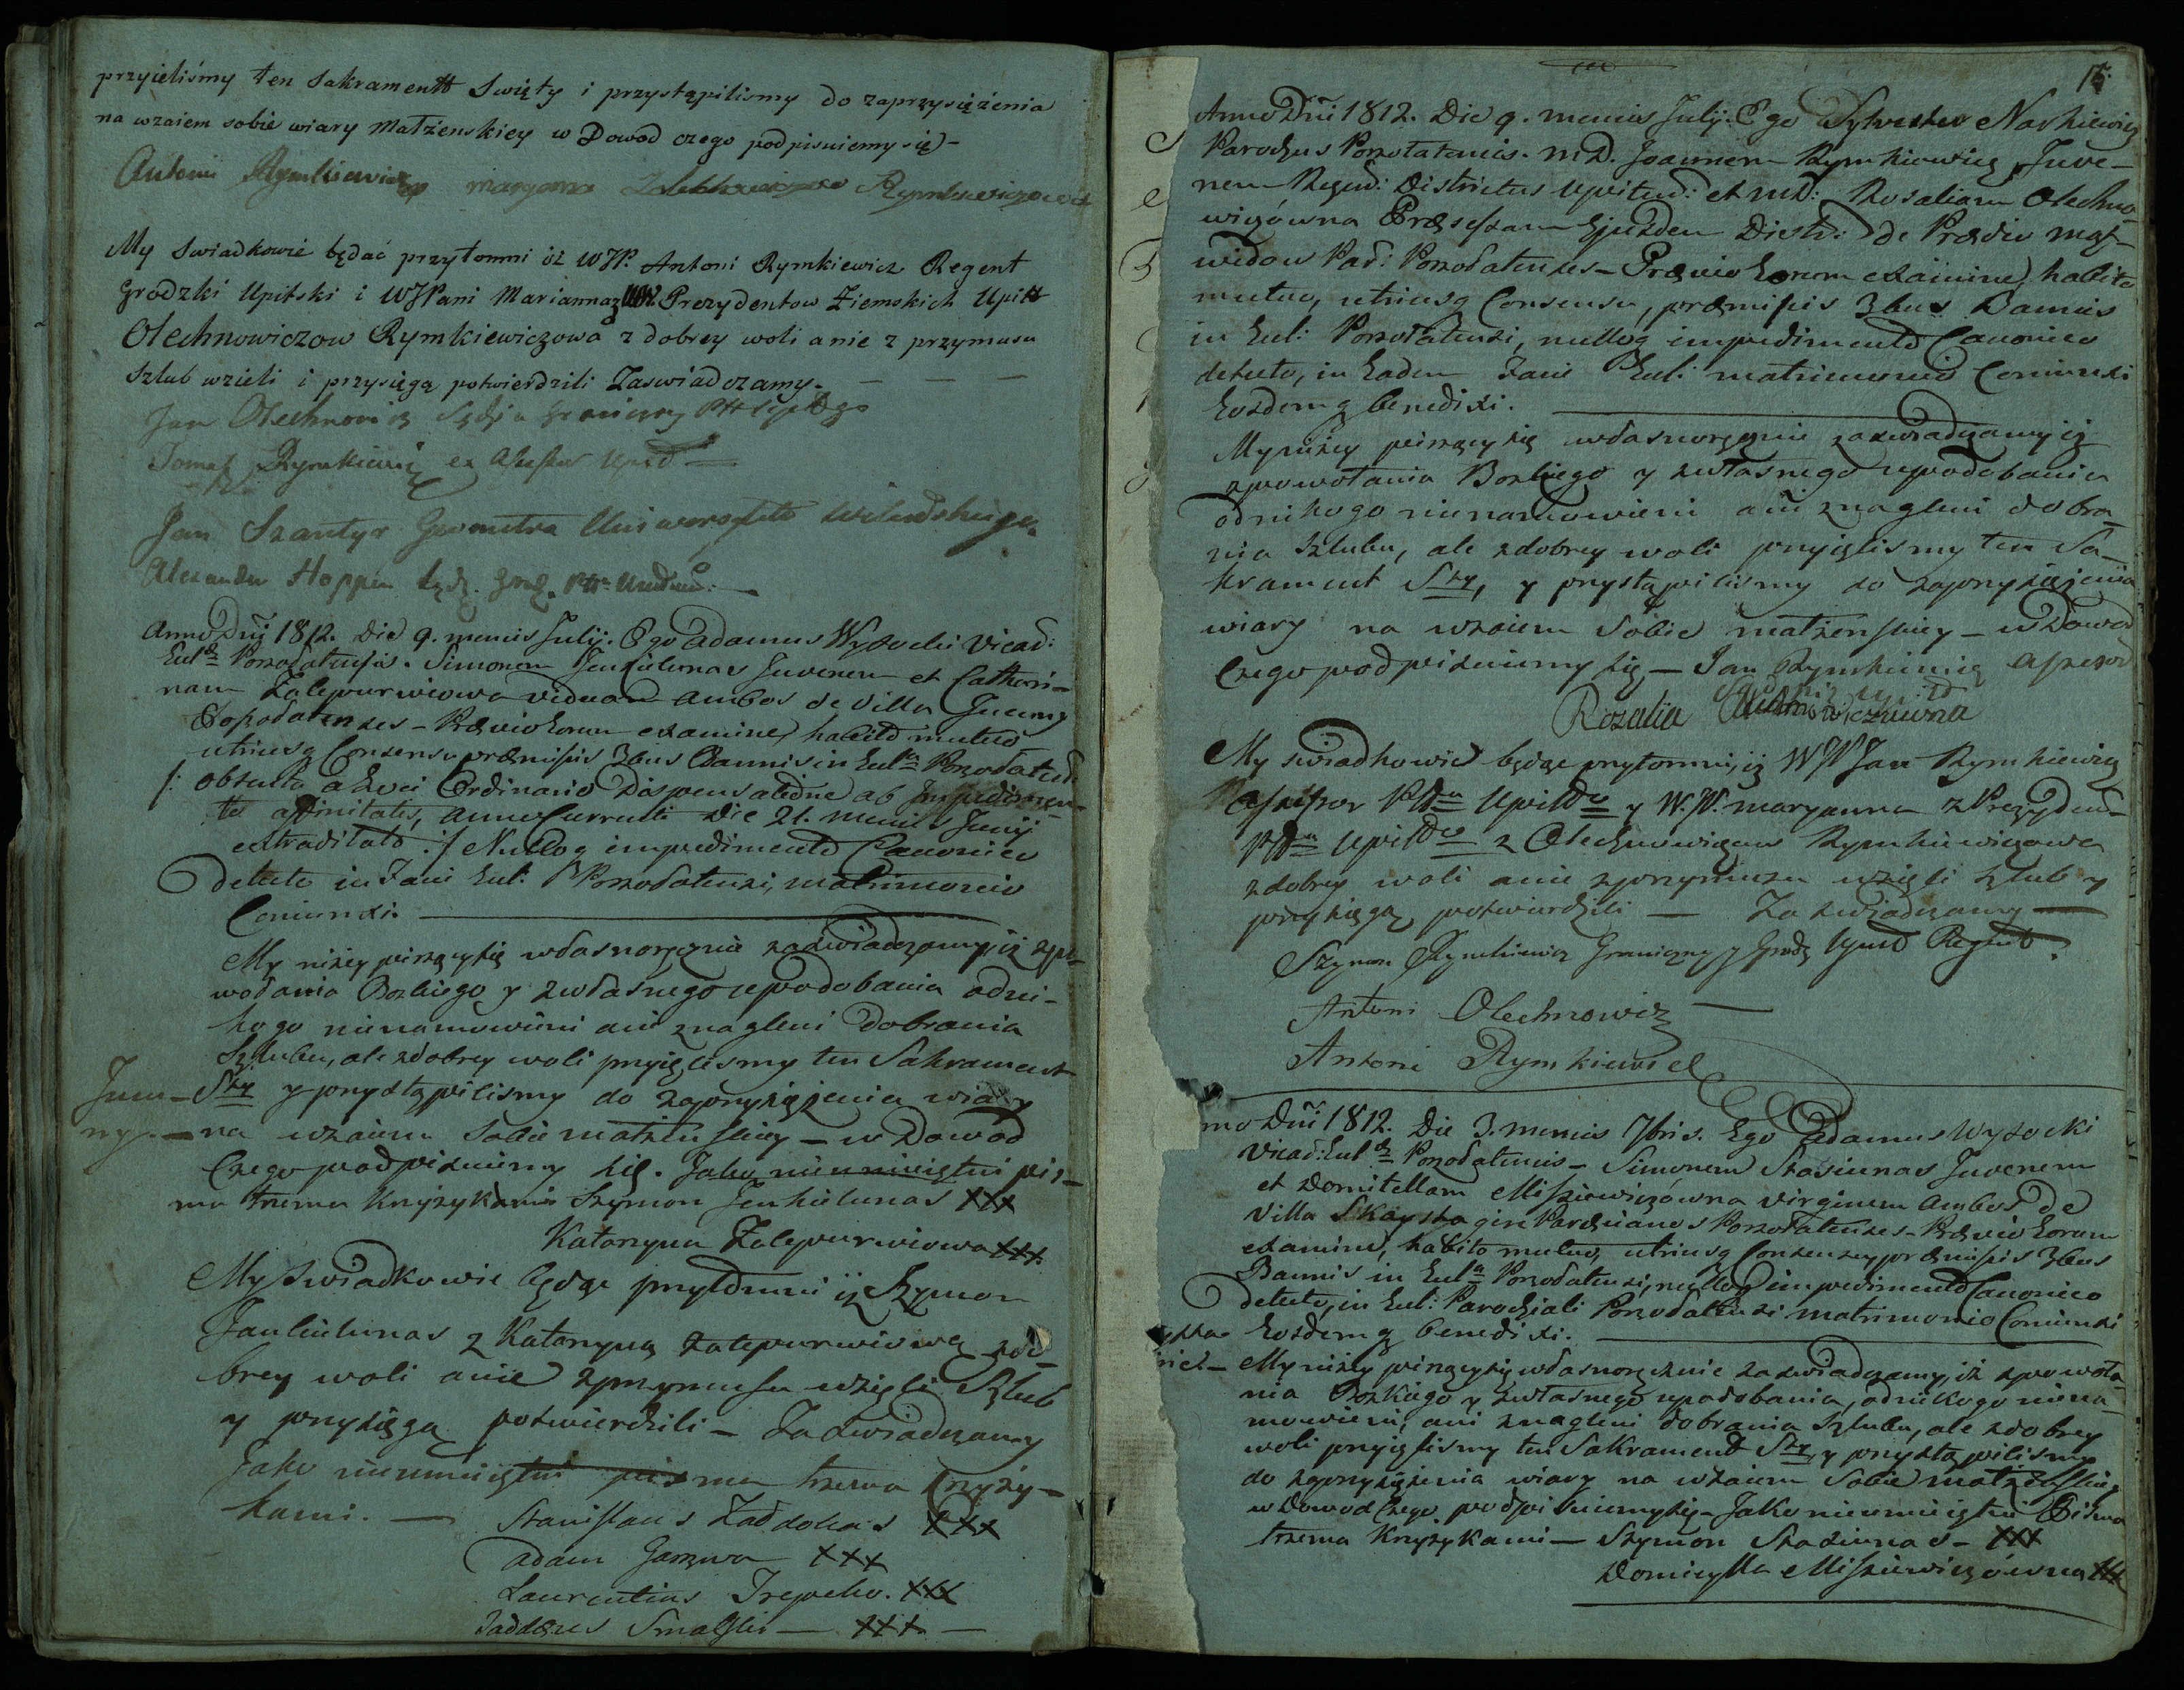 przyieliśmy ten Sakramentt Swięty i przystąpilismy do zaprzysiężenia
na wzaiem sobie wiary Małżenskiey w Dowod czego podpisuiemy się -
Antoni Rymkiewicz Rymkiewiczowa
My Swiadkowie będać przytomni iż WJP. Antoni Rymkiewicz Regent
Grodzki Upitski i WJPani Marianna z Prezydentow Ziemskich Upitt
Olechnowiczow Rymkiewiczowa z dobrey woli a nie z przymusu
Szlub wzieli i przysięgą potwierdzili Zaswiadczamy. — — —
Jan Olechnowicz Sędzia Graniczny
Tomasz Rymkiewicz ex
Jan Szantyr Geometra Uniwersytetu Wilenskiego
Alexander Hoppen
Anno Dni 1812. Die 9. mensis Julij. Ego Adamus Wysocki Vicar:
Simonem Juvenem et Cathari-
nam Zalepurwiowa viduam ambos de Villa
Poszołatenses - Prævio horum examine, habito mutuo
utriusq Consensu præmissis 3bus Bannis in Poszołaten
/: obtenta a Loci Ordinario Dispensatione ab Impedimen-
to affinitatis, Anno Currenti Die 21. mensis Junij
extradita :/ Nulloq impedimento Canonico
detecto in Facie Eccl: Poszołatensi, matrimonio
Coniunxi. —
My niżey piszący się własnoręcznie zaświadczamy iż z po-
wołania Bozkiego y z własnego upodobania od ni-
kogo nienamowieni ani znagleni do brania
Szlubu, ale z dobrey woli przyięlismy ten Sakrament
Sty y przystąpilismy do zaprzysiężenia wiary
na wzaiem Sobie małżenskiey - w Dowod
Czego podpisuiemy się. Jako nieumieiętni pis-
ma trzema Krzyżykami Szymon Jenkielunas XXX
Katarzyna Zalepurwiowa XXX.
My Swiadkowie będąc przytomni iż Szymon
z Katarzyną Zalepurwiową z do-
brey woli a nie z przymusu wzięli Szlub
y przysięgą potwierdzili - Zaświadczamy
Jako nieumieiętni pisma trzema Krzyży-
kami. — Stanislaus XXX
Adam XXX
Laurentius XXX
Taddæus — XXX —
15.
Anno Dni 1812. Die 9. mensis Julij. Ego Sylvester Narkiewicz
Parochus Poszołatensis. M.D. Joannem Rymkiewicz, Juve-
nem Districtus et M.D: Rosaliam Olechno-
wiczówna ejusdem Distr: de Prædio
Par: Poszołatenses - Prævio horum examine, habito
mutuo, utriusq Consensu, præmissis 3bus Bannis
in Eccl: Poszołatensi, nulloq impedimento Canonico
detecto, in Eadem Facie Eccl: matrimonio Coniunxi
Eosdemq benedixi. —
My niżey piszący się własnoręcznie zaświadczamy iż
z powołania Bozkiego y z własnego upodobania
od nikogo nienamowieni ani znagleni do bra-
nia Szlubu, ale z dobrey woli przyięlismy ten Sa-
krament Sty, y przystąpilismy do zaprzysiężenia
wiary na wzaiem Sobie małżenskiey - w Dowod
Czego podpisuiemy się - Jan Rymkiewicz Assesor
Rozalia Olechnowiczowna
My swiadkowie będąc przytomni, iż WJP Jan Rymkiewicz
Assessor y W.JP. Maryanna z Prezydent
z Olechnowiczow Rymkiewiczowa
z dobrey woli a nie z przymusu wzięli Szlub y
przysięgą potwierdzili — Zaświadczamy —
Szymon Rymkiewicz Graniczny y Regent
Antoni Olechnowicz —
Antoni Rymkiewicz
Dni 1812. Die 3. mensis 7bris. Ego Adamus Wysocki
Poszołatensis - Simonem Stasiunas Juvenem
et Domitellam Missiewiczówna virginem ambos de
Villa Poszołatenses - Prævio horum
examine, habito mutuo, utriusq Consensu, præmissis 3bus
Bannis in Poszołatensi, nulloq impedimento Canonico
detecto, in Eccl: Parochiali Poszołatensi matrimonio Coniunxi
Eosdemq benedixi. —
My niżey piszący się własnoręcznie zaświadczamy, iż z powoła-
nia Bozkiego y z własnego upodobania, od nikogo niena-
mowieni, ani znagleni do brania Szlubu, ale z dobrey
woli przyięlismy ten Sakrament Sty y przystąpilismy
do zaprzysiężenia wiary na wzaiem Sobie małżenskiey
w Dowod Czego podpisuiemy się - Jako nieumieiętni Pisma
trzema Krzyżykami — Szymon Stasiunas - XXX
Domicylla Missiewiczówna XXX